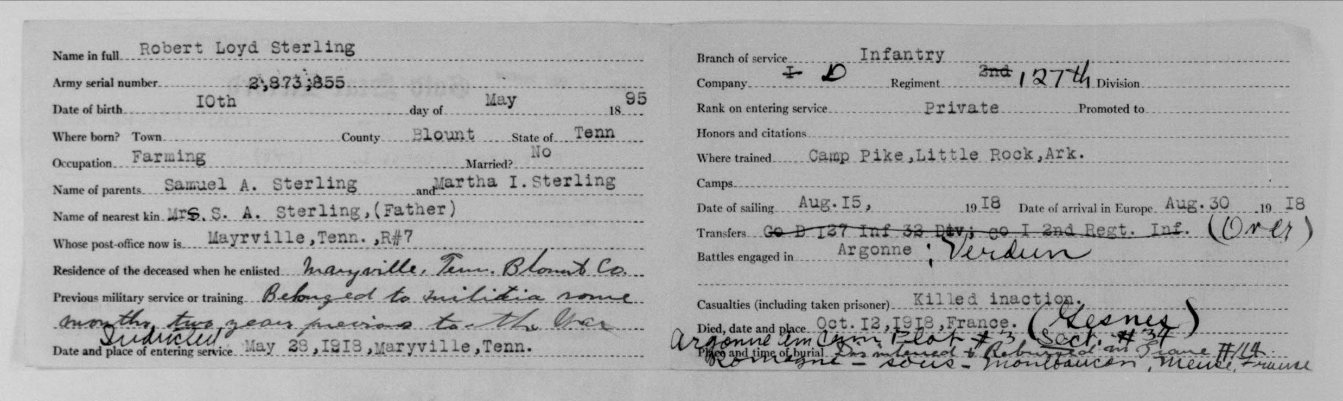 Name in full Robert Loyd Sterling
Army serial number 2,873,855
Date of birth 10th day of May 18 95
Where born? Town County Blount State of Tenn
Occupation Farming Married? No
Name of parents Samuel A. Sterling and Martha I. Sterling
Name of nearest kin Mrs. S. A. Sterling, (Father)
Whose post-office now is Mayrville, Tenn. ,R#7
Residence of the deceased when he enlisted Maryville, Tenn. Blount Co.
Previous military service or training Belonged to militia some
months, two years previous to the War
Inducted
Date and place of entering service May 28, 1918, Maryville, Tenn.
Branch of service Infantry
Company I D Regiment 2nd 127th Division
Rank on entering service Private Promoted to
Honors and citations
Where trained Camp Pike, Little Rock, Ark.
Camps
Date of sailing Aug. 15, 19 18 Date of arrival in Europe Aug. 30 , 19 18
Transfers Co D 127 Inf 32 Div; co I 2nd Regt. Inf. (Over)
Battles engaged in Argonne ; Verdun
Casualties (including taken prisoner) Killed inaction.
Died, date and place Oct. 12, 1918, France. (Gesnes)
Argonne Am Cem Plot # 3, Sect. # 34
Place and time of burial Disinterred & Reburied in Grave #114
Romagne - sous - Montfaucon, Meuse, France